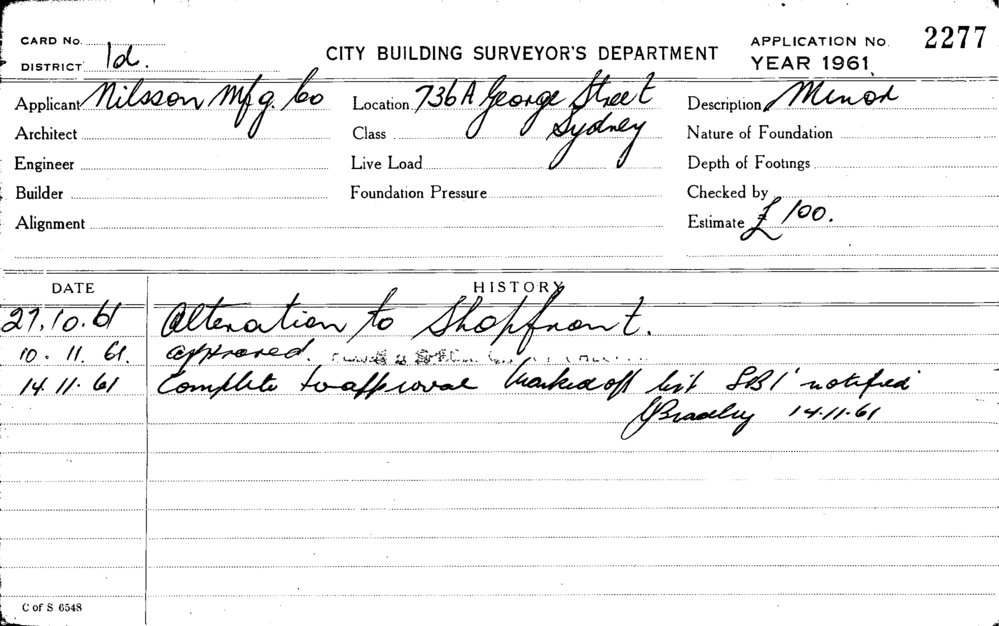 CARD No.
DISTRICT 1d.
CITY BUILDING SURVEYOR'S DEPARTMENT
APPLICATION No. 2277
YEAR 1961
Applicant Nilsson Mfg. Co Location 736A George Street Description Minor
Architect Class Sydney Nature of Foundation
Engineer Live Load Depth of Footings
Builder Foundation Pressure Checked by
Alignment Estimate £100.
DATE HISTORY
27.10.61 Alteration to Shopfront.
10.11.61. approved.
14.11.61 Complete to approval Marked off list SBI notified
JBradley 14.11.61
C of S 6548